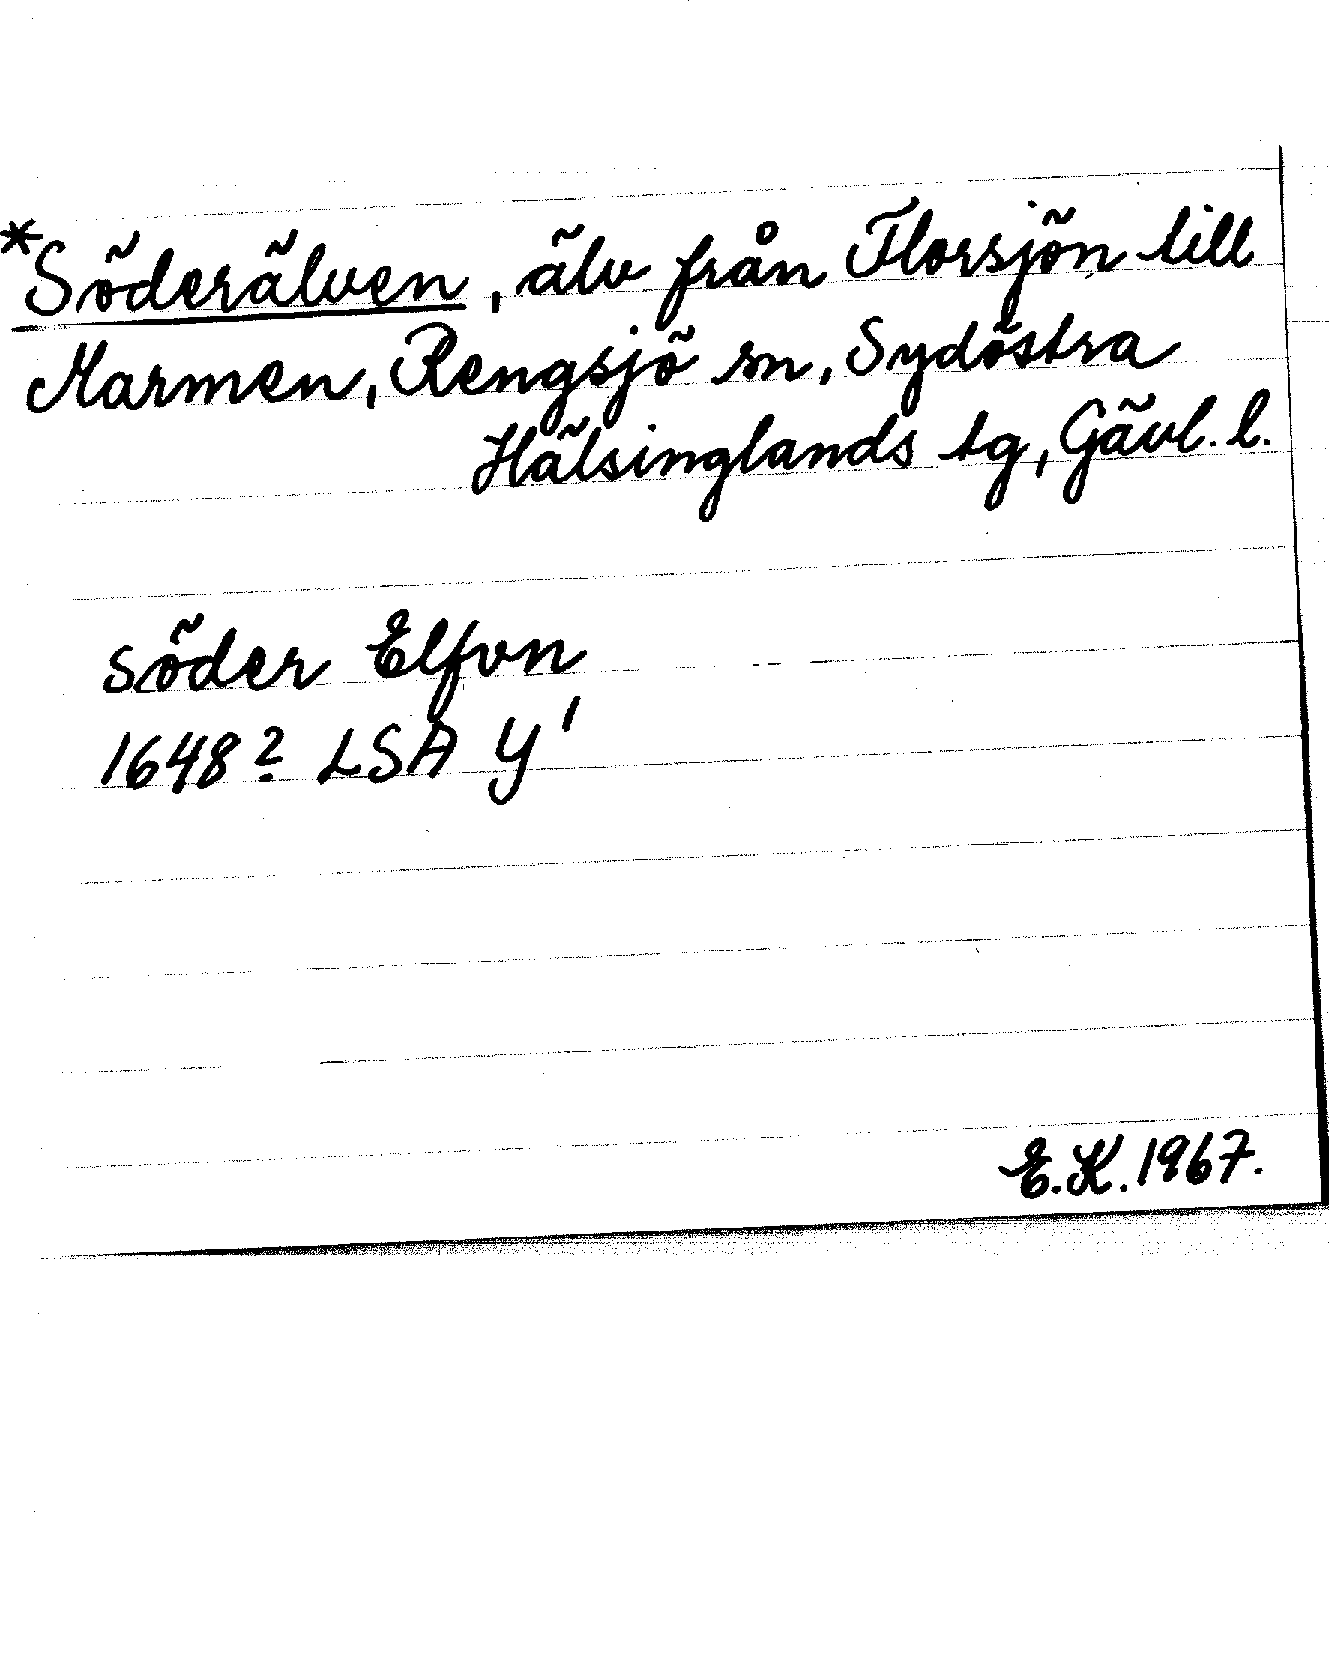 *Söderälven, älv från Florsjön till
Marmen, Rengsjö sn, Sydöstra
Hälsinglands tg, Gävl. l.
söder Elfvn
1648? LSA Y'
E.K. 1967.